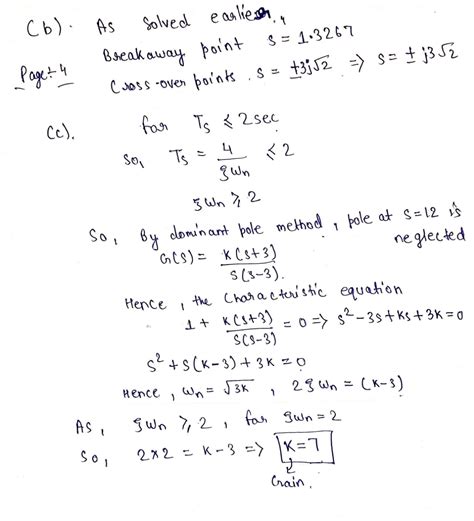 (b). As Solved earlier,
Breakaway point s = 1.3267
Page:- 4
Cross-over points. s = ±3j√2 => s = ± j3√2
(c). for Ts ≤ 2 sec
So, Ts = 4/ζωn ≤ 2
ζωn ≥ 2
So, By dominant pole method, pole at s=12 is neglected
G(s) = K(s+3)/s(s-3).
Hence, the characteristic equation
1 + K(s+3)/s(s-3) = 0 => s² - 3s + Ks + 3K = 0
s² + s(K-3) + 3K = 0
Hence, ωn = √3K , 2ζωn = (K-3)
As, ζωn ≥ 2, for ζωn = 2
So, 2×2 = K-3 => K=7
Gain.